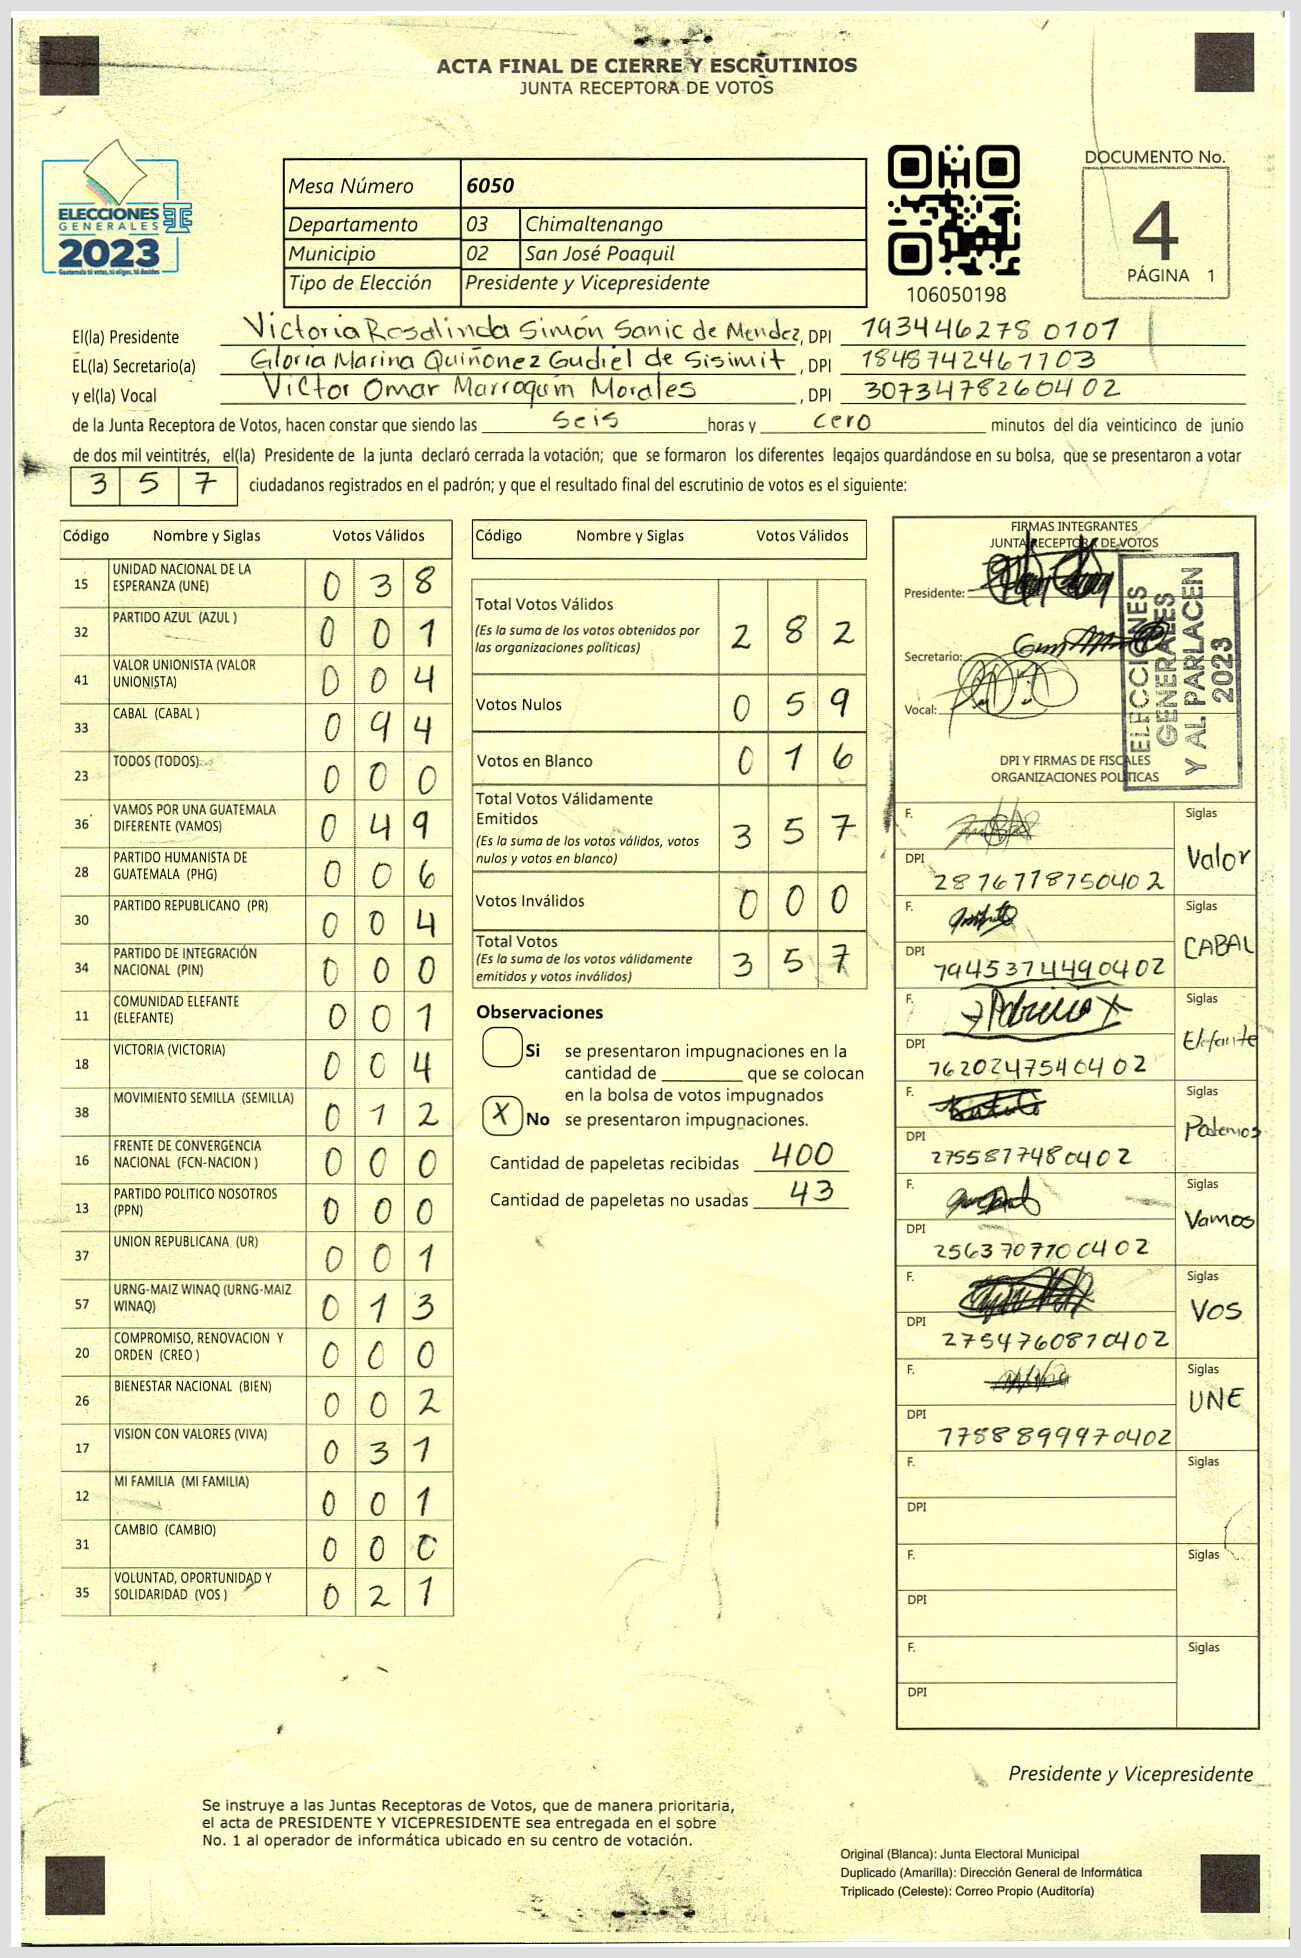 ACTA FINAL DE CIERRE Y ESCRUTINIOS
JUNTA RECEPTORA DE VOTOS
ELECCIONES
GENERALES
2023
Guatemala tú votas, tú eliges, tú decides
Mesa Número 6050
Departamento 03 Chimaltenango
Municipio 02 San José Poaquil
Tipo de Elección Presidente y Vicepresidente
106050198
DOCUMENTO No.
4
PÁGINA 1
El(la) Presidente Victoria Rosalinda Simón Sanic de Mendez, DPI 193446278 0101
EL(la) Secretario(a) Gloria Marina Quiñonez Gudiel de Sisimit, DPI 1848742461103
y el(la) Vocal Victor Omar Marroquin Morales, DPI 3073478260402
de la Junta Receptora de Votos, hacen constar que siendo las seis horas y cero minutos del día veinticinco de junio
de dos mil veintitrés, el(la) Presidente de la junta declaró cerrada la votación; que se formaron los diferentes legajos guardándose en su bolsa, que se presentaron a votar
3 5 7 ciudadanos registrados en el padrón; y que el resultado final del escrutinio de votos es el siguiente:
Código Nombre y Siglas Votos Válidos
15 UNIDAD NACIONAL DE LA ESPERANZA (UNE) 0 3 8
32 PARTIDO AZUL (AZUL ) 0 0 1
41 VALOR UNIONISTA (VALOR UNIONISTA) 0 0 4
33 CABAL (CABAL ) 0 9 4
23 TODOS (TODOS) 0 0 0
36 VAMOS POR UNA GUATEMALA DIFERENTE (VAMOS) 0 4 9
28 PARTIDO HUMANISTA DE GUATEMALA (PHG) 0 0 6
30 PARTIDO REPUBLICANO (PR) 0 0 4
34 PARTIDO DE INTEGRACIÓN NACIONAL (PIN) 0 0 0
11 COMUNIDAD ELEFANTE (ELEFANTE) 0 0 1
18 VICTORIA (VICTORIA) 0 0 4
38 MOVIMIENTO SEMILLA (SEMILLA) 0 1 2
16 FRENTE DE CONVERGENCIA NACIONAL (FCN-NACION ) 0 0 0
13 PARTIDO POLITICO NOSOTROS (PPN) 0 0 0
37 UNION REPUBLICANA (UR) 0 0 1
57 URNG-MAIZ WINAQ (URNG-MAIZ WINAQ) 0 1 3
20 COMPROMISO, RENOVACION Y ORDEN (CREO ) 0 0 0
26 BIENESTAR NACIONAL (BIEN) 0 0 2
17 VISION CON VALORES (VIVA) 0 3 1
12 MI FAMILIA (MI FAMILIA) 0 0 1
31 CAMBIO (CAMBIO) 0 0 0
35 VOLUNTAD, OPORTUNIDAD Y SOLIDARIDAD (VOS ) 0 2 1
Código Nombre y Siglas Votos Válidos
Total Votos Válidos 2 8 2
(Es la suma de los votos obtenidos por
las organizaciones políticas)
Votos Nulos 0 5 9
Votos en Blanco 0 1 6
Total Votos Válidamente
Emitidos 3 5 7
(Es la suma de los votos válidos, votos
nulos y votos en blanco)
Votos Inválidos 0 0 0
Total Votos 3 5 7
(Es la suma de los votos válidamente
emitidos y votos inválidos)
Observaciones
Si se presentaron impugnaciones en la
cantidad de ________ que se colocan
en la bolsa de votos impugnados
X No se presentaron impugnaciones.
Cantidad de papeletas recibidas 400
Cantidad de papeletas no usadas 43
FIRMAS INTEGRANTES
JUNTA RECEPTORA DE VOTOS
Presidente:
Secretario:
Vocal:
ELECCIONES
GENERALES
Y AL PARLACEN
2023
DPI Y FIRMAS DE FISCALES
ORGANIZACIONES POLÍTICAS
F. Siglas
Valor
DPI 2876778750402
F. Siglas
CABAL
DPI 7945374490402
F. Siglas
Elefante
DPI 7620247540402
F. Siglas
Podemos
DPI 2755877480402
F. Siglas
Vamos
DPI 2563707700402
F. Siglas
VOS
DPI 2754760870402
F. Siglas
UNE
DPI 7758899970402
F. Siglas
DPI
F. Siglas
DPI
F. Siglas
DPI
Presidente y Vicepresidente
Se instruye a las Juntas Receptoras de Votos, que de manera prioritaria,
el acta de PRESIDENTE Y VICEPRESIDENTE sea entregada en el sobre
No. 1 al operador de informática ubicado en su centro de votación.
Original (Blanca): Junta Electoral Municipal
Duplicado (Amarilla): Dirección General de Informática
Triplicado (Celeste): Correo Propio (Auditoría)